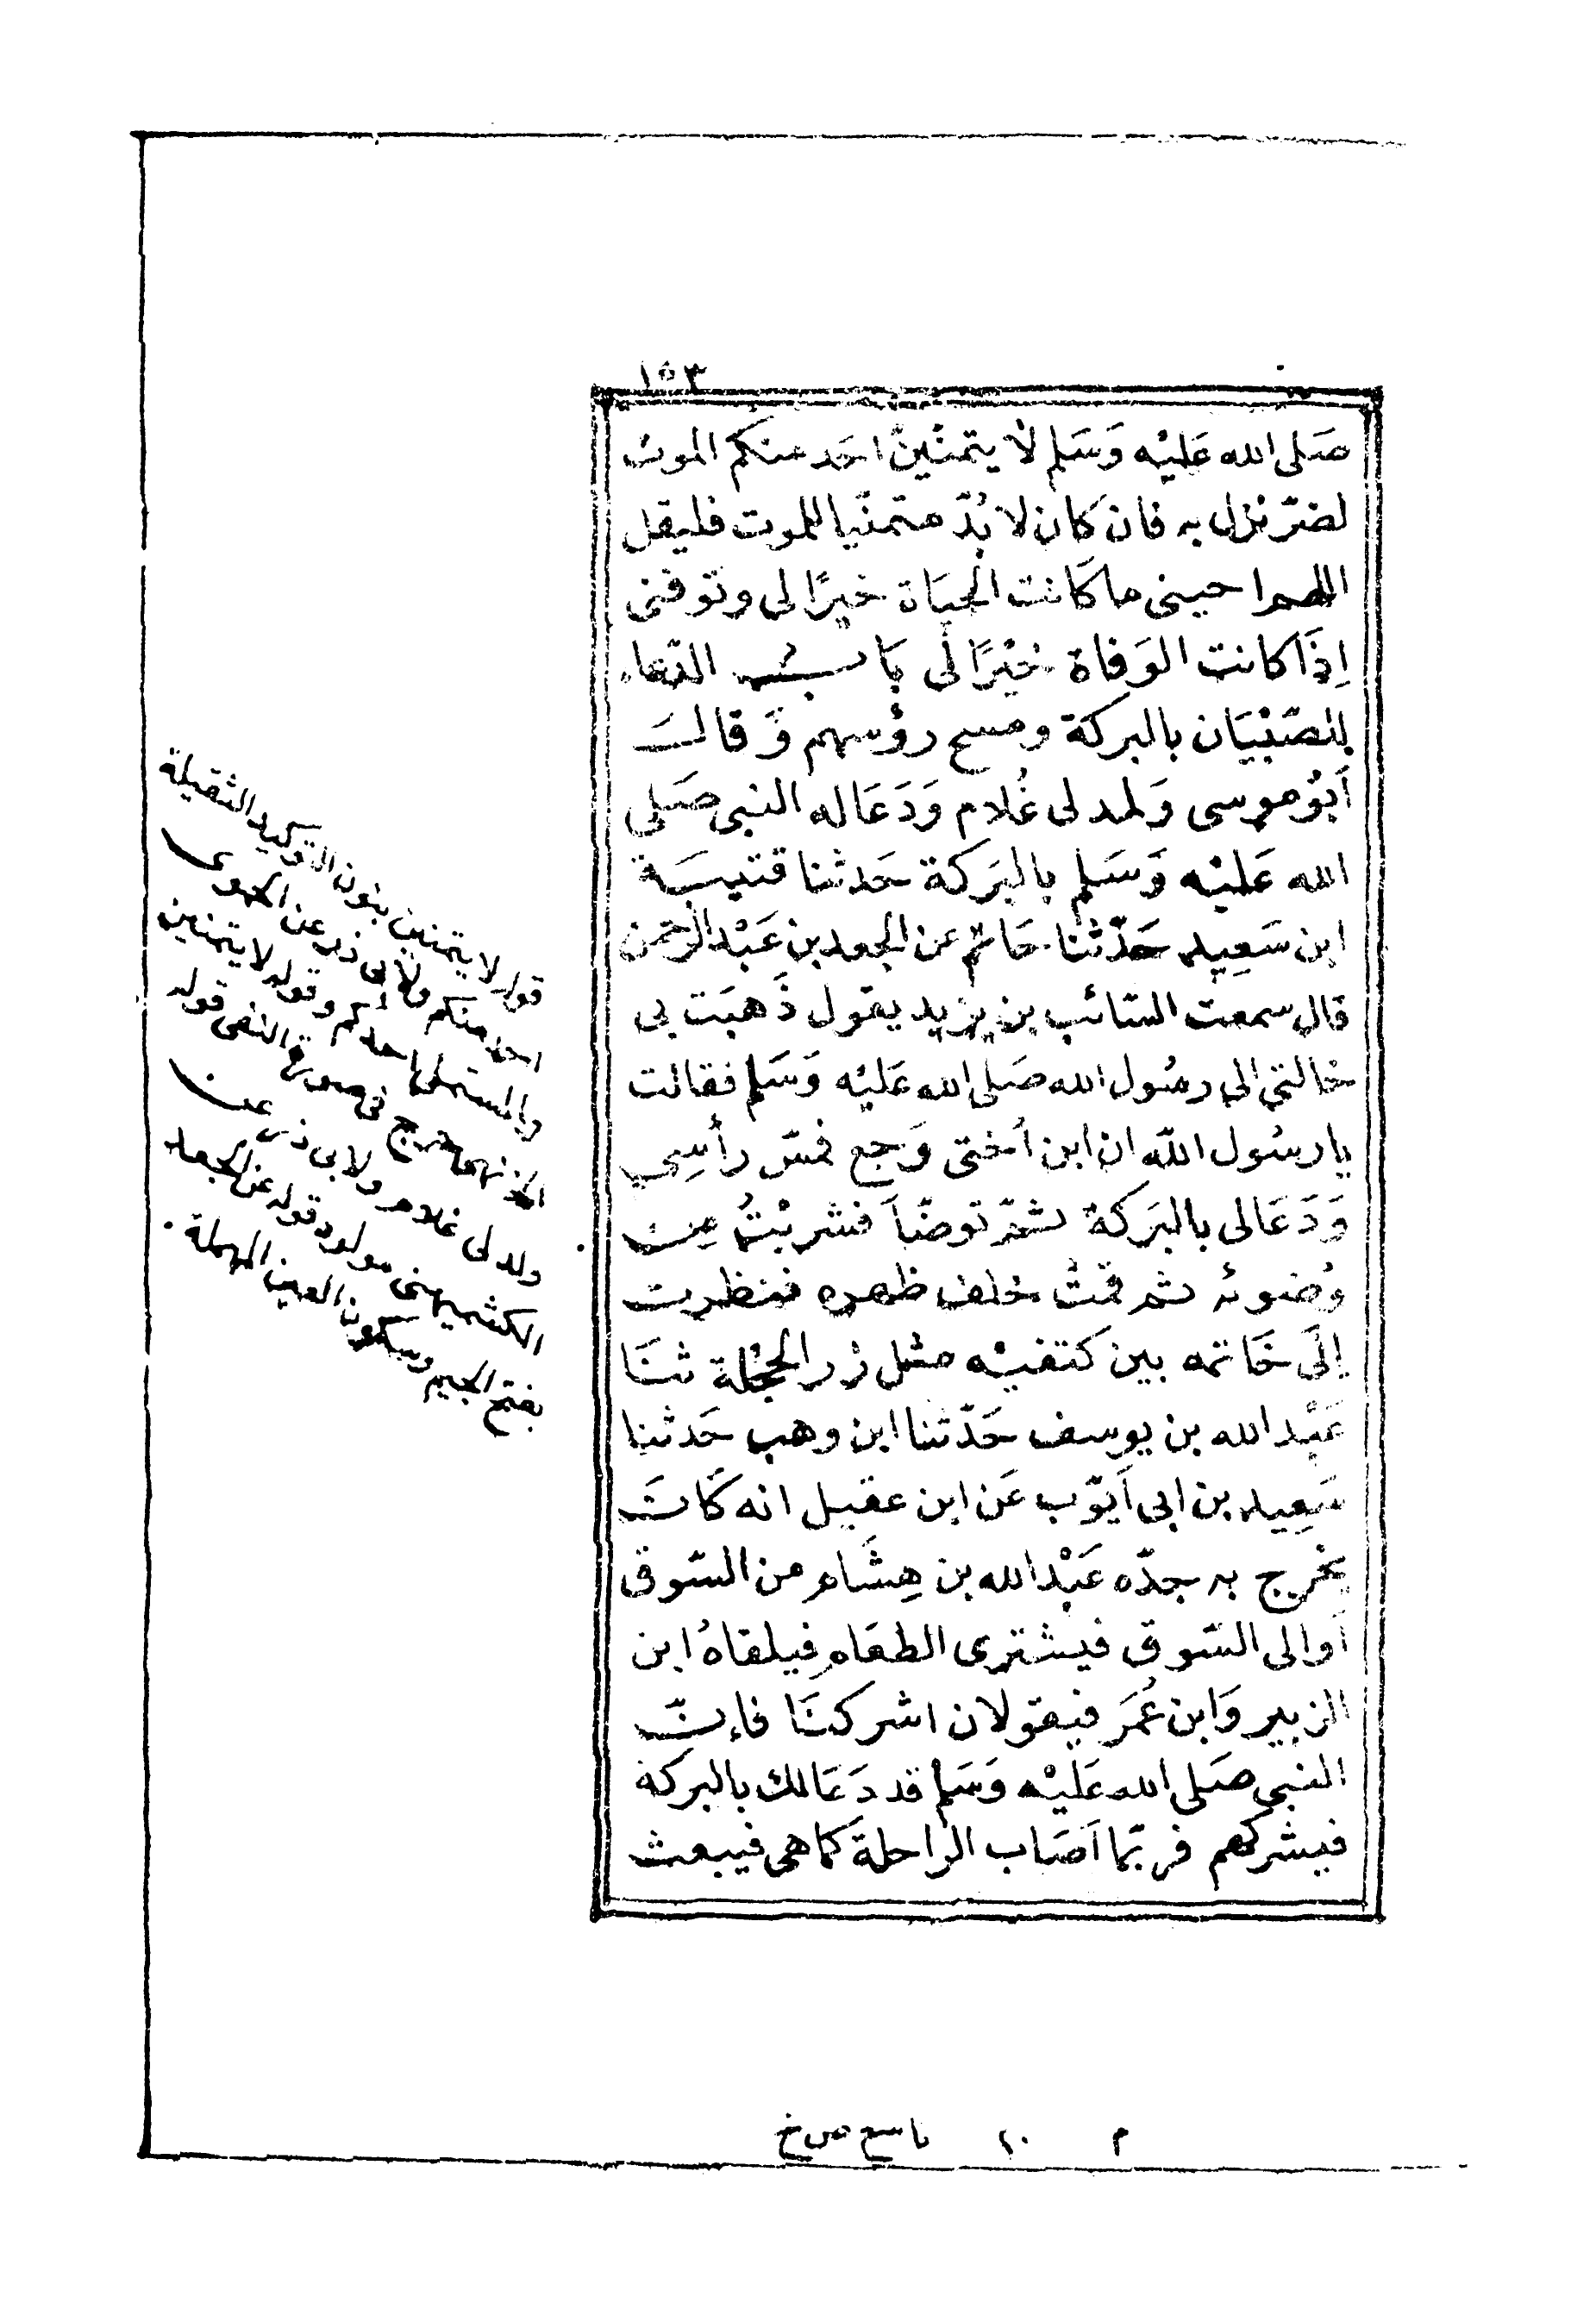 ١٥٣
صَلى الله عَليْه وَسَلم لا يتمنّينّ احَد منكم الموت
لضرّ نزل به فان كان لا بُدّ متمنّيا للموت فليقل
اللهم احيينى ما كَانت الحيَاة خيرًا لى وتوفنى
اِذَا كانت الوَفاة خيْرًا لى بَابُ الدّعاء
للصّبْيَان بالبركة ومسح رؤسهم وَقالَ
أبوُ موسى وَلد لى غُلام وَدَعَا له النبى صَلى
الله عَليْه وَسَلم بالبَركة حَدثنا قتيبَة
ابن سَعِيد حَدّثنا حَاتم عن الجعد بن عَبْد الرّحمن
قال سمعت السّائب بن يزيد يقول ذَهبَت بى
خالتى الى رسُول الله صَلى الله عَليْه وَسَلم فقالت
يا رسُول اللّه ان ابن اُختى وَجع فمسّ رأسِي
وَدَعَا لى بالبَركة ثمّ توضّأ فشربْتُ مِن
وُضوئه ثم قمْتُ خلف ظهره فنظرت
إلَى خَاتمه بين كتفيْه مثل زر الحجْلة ثنَا
عَبْد الله بن يوسف حَدّثنا ابن وهب حَدثنا
سَعِيد بن ابى اَيوّب عَن ابن عقيل انه كَانَ
يخرج به جدّه عَبْد الله بن هِشَام من السّوق
أو الى السّوق فيشترى الطعَام فيلقاهُ ابن
الزبير وَابن عُمَر فيقولان اشركنَا فإنّ
النبى صَلى الله عَليْه وَسَلم قد دَعَا لك بالبركة
فيشركهم فربّما اَصَاب الرّاحلة كما هى فيبعث
قوله لا يتمنين بنون التوكيد الثقيلة
احد منكم ولابى ذر عن الحموى
والمستملى احدكم وقوله لا يتمنين
نهى خرج فى صورة النفى قوله
ولد لى غلام ولابى ذر عن
الكشميهنى مولود قوله عن الجعد
بفتح الجيم وسكون العين المهملة.
م ٢٠ تاسع ص خ